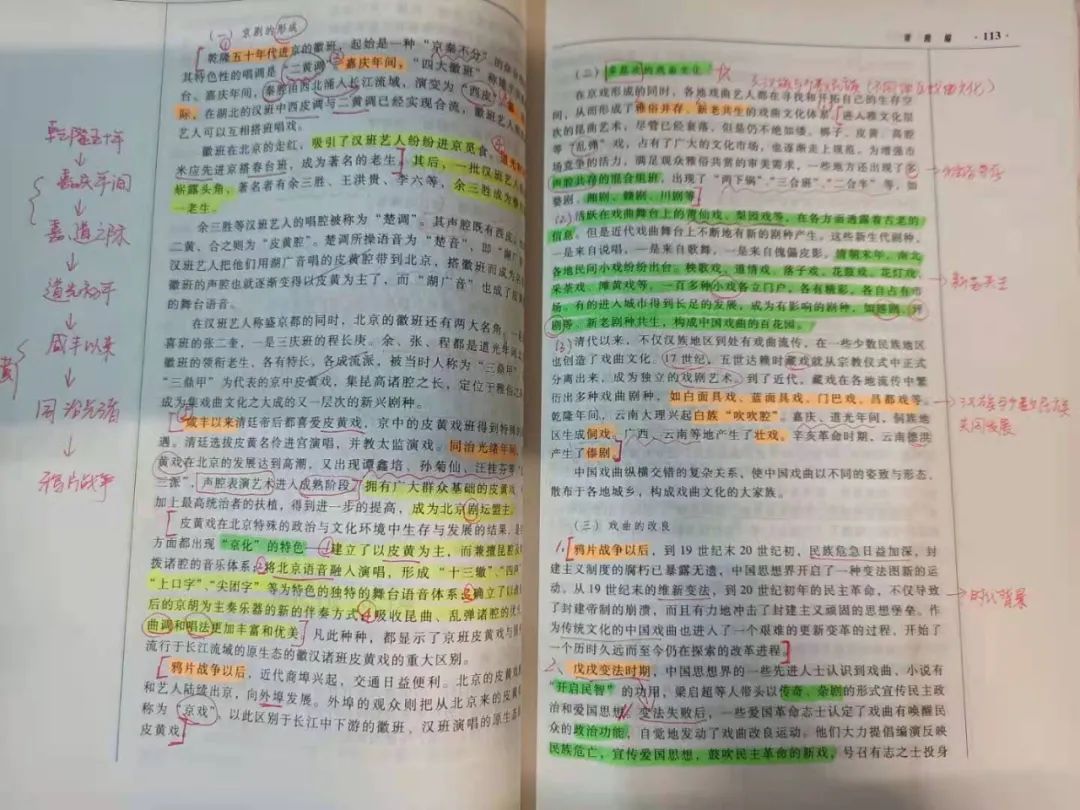 (一) 京剧的形成
乾隆五十年代进京的徽班，起始是一种“京秦不分”的
其特色性的唱调是“二黄调”。嘉庆年间，“四大徽班”称雄
台、嘉庆年间，秦腔由西北涌入长江流域，演变为“西皮
际，在湖北的汉班中西皮调与二黄调已经实现合流，徽班
艺人可以互相搭班唱戏。
徽班在北京的走红，吸引了汉班艺人纷纷进京觅食。道光初
米应先进京搭春台班，成为著名的老生。其后，一批汉班艺
崭露头角，著名者有余三胜、王洪贵、李六等，余三胜成为
一老生。
余三胜等汉班艺人的唱腔被称为“楚调”。其声腔既有西皮
二黄、合之则为“皮黄腔”。楚调所操语音为“楚音”，即“湖
汉班艺人把他们用湖广音唱的皮黄腔带到北京，搭徽班而成为
徽班的声腔也就逐渐变得以皮黄为主了，而“湖广音”也成了皮
的舞台语言。
在汉班艺人称盛京都的同时，北京的徽班还有两大名角，一
喜班的张二奎，一是三庆班的程长庚。余、张、程都是道光年间
徽班的领衔老生，各有特长，各成流派，被当时人称为“三鼎甲”
“三鼎甲”为代表的京中皮黄戏，集昆高诸腔之长，定位于雅俗之
成为集戏曲文化之大成的又一层次的新兴剧种。
咸丰以来清廷帝后都喜爱皮黄戏，京中的皮黄戏班得到特殊的
遇。清廷选拔皮黄名伶进宫演唱，并教太监演戏。同治光绪年间
黄戏在北京的发展达到高潮，又出现谭鑫培、孙菊仙、汪桂芬等
三派”，声腔表演艺术进入成熟阶段。拥有广大群众基础的皮黄戏
加上最高统治者的扶植，得到进一步的提高，成为北京剧坛盟主。
皮黄戏在北京特殊的政治与文化环境中生存与发展的结果，是
方面都出现“京化”的特色：建立了以皮黄为主，而兼擅昆腔
拨诸腔的音乐体系；将北京语音融入演唱，形成“十三辙”、“四声”
“上口字”、“尖团字”等为特色的独特的舞台语音体系；确立了以改
后的京胡为主奏乐器的新的伴奏方式；吸收昆曲、乱弹诸腔的优
曲调和唱法更加丰富和优美。凡此种种，都显示了京班皮黄戏与
流行于长江流域的原生态的徽汉诸班皮黄戏的重大区别。
鸦片战争以后，近代商埠兴起，交通日益便利。北京的皮黄戏
和艺人陆续出京，向外埠发展。外埠的观众则把从北京来的皮黄
称为“京戏”，以此区别于长江中下游的徽班、汉班演唱的原生态
皮黄戏。
乾隆五十年
嘉庆年间
嘉、道之际
道光初年
咸丰以来
同治光绪
鸦片战争
黄
·113·
(二) 多层次的戏曲文化
在京戏形成的同时，各地戏曲艺人都在寻找和开拓自己的生存空
间，从而形成了雅俗并存、新老共生的戏曲文化体系。进入雅文化层
次的昆曲艺术，尽管已经衰落，但是仍不绝如缕。梆子、皮黄、高腔
等“乱弹”戏，占有了广大的文化市场，也逐渐走上规范。为增强市
场竞争的活力，满足观众雅俗共赏的审美需求，一些地方还出现了多
声腔共存的混合组班，出现了“两下锅”、“三合班”、“二合半”等，如
婺剧、湘剧、赣剧、川剧等。
活跃在戏曲舞台上的青仙戏、梨园戏等，在各方面透露着古老的
信息。但是近代戏曲舞台上不断地有新的剧种产生。这些新生代剧种，
一是来自说唱，一是来自歌舞，一是来自傀儡皮影。清朝末年，南北
各地民间小戏纷纷出台。秧歌戏、道情戏、落子戏、花鼓戏、花灯戏、
采茶戏、滩黄戏等，一百多种小戏各立门户，各有精彩，各自占有市
场。有的进入城市得到长足的发展，成为有影响的剧种，如越剧、评
剧等。新老剧种共生，构成中国戏曲的百花园。
清代以来，不仅汉族地区到处有戏曲流传，在一些少数民族地区
也创造了戏曲文化。17世纪，五世达赖时藏戏就从宗教仪式中正式
分离出来，成为独立的戏剧艺术。到了近代，藏戏在各地流传中繁
衍出多种戏曲剧种，如白面具戏、蓝面具戏、门巴戏、昌都戏等。
乾隆年间，云南大理兴起白族“吹吹腔”。嘉庆、道光年间，侗族地
区生成侗戏。广西、云南等地产生了壮戏。辛亥革命时期，云南德宏
产生了傣剧。
中国戏曲纵横交错的复杂关系，使中国戏曲以不同的姿致与形态，
散布于各地城乡，构成戏曲文化的大家族。
(三) 戏曲的改良
1. 鸦片战争以后，到19世纪末20世纪初，民族危急日益加深，封
建主义制度的腐朽已暴露无遗，中国思想界开启了一种变法图新的运
动。从19世纪末的维新变法，到20世纪初年的民主革命，不仅导致
了封建帝制的崩溃，而且有力地冲击了封建主义顽固的思想学垒。作
为传统文化的中国戏曲也进入了一个艰难的更新变革的过程，开始了
一个历时久远而至今仍在探索的改革进程。
2. 戊戌变法时期，中国思想界的一些先进人士认识到戏曲、小说有
“开启民智”的功用，梁启超等人带头以传奇、杂剧的形式宣传民主政
治和爱国思想。变法失败后，一些爱国革命志士认定了戏曲有唤醒民
众的政治功能，自觉地发动了戏曲改良运动。他们大力提倡编演反映
民族危亡，宣传爱国思想，鼓吹民主革命的新戏，号召有志之士投身
新老共生
汉族与少数民族
共同发展
时代背景